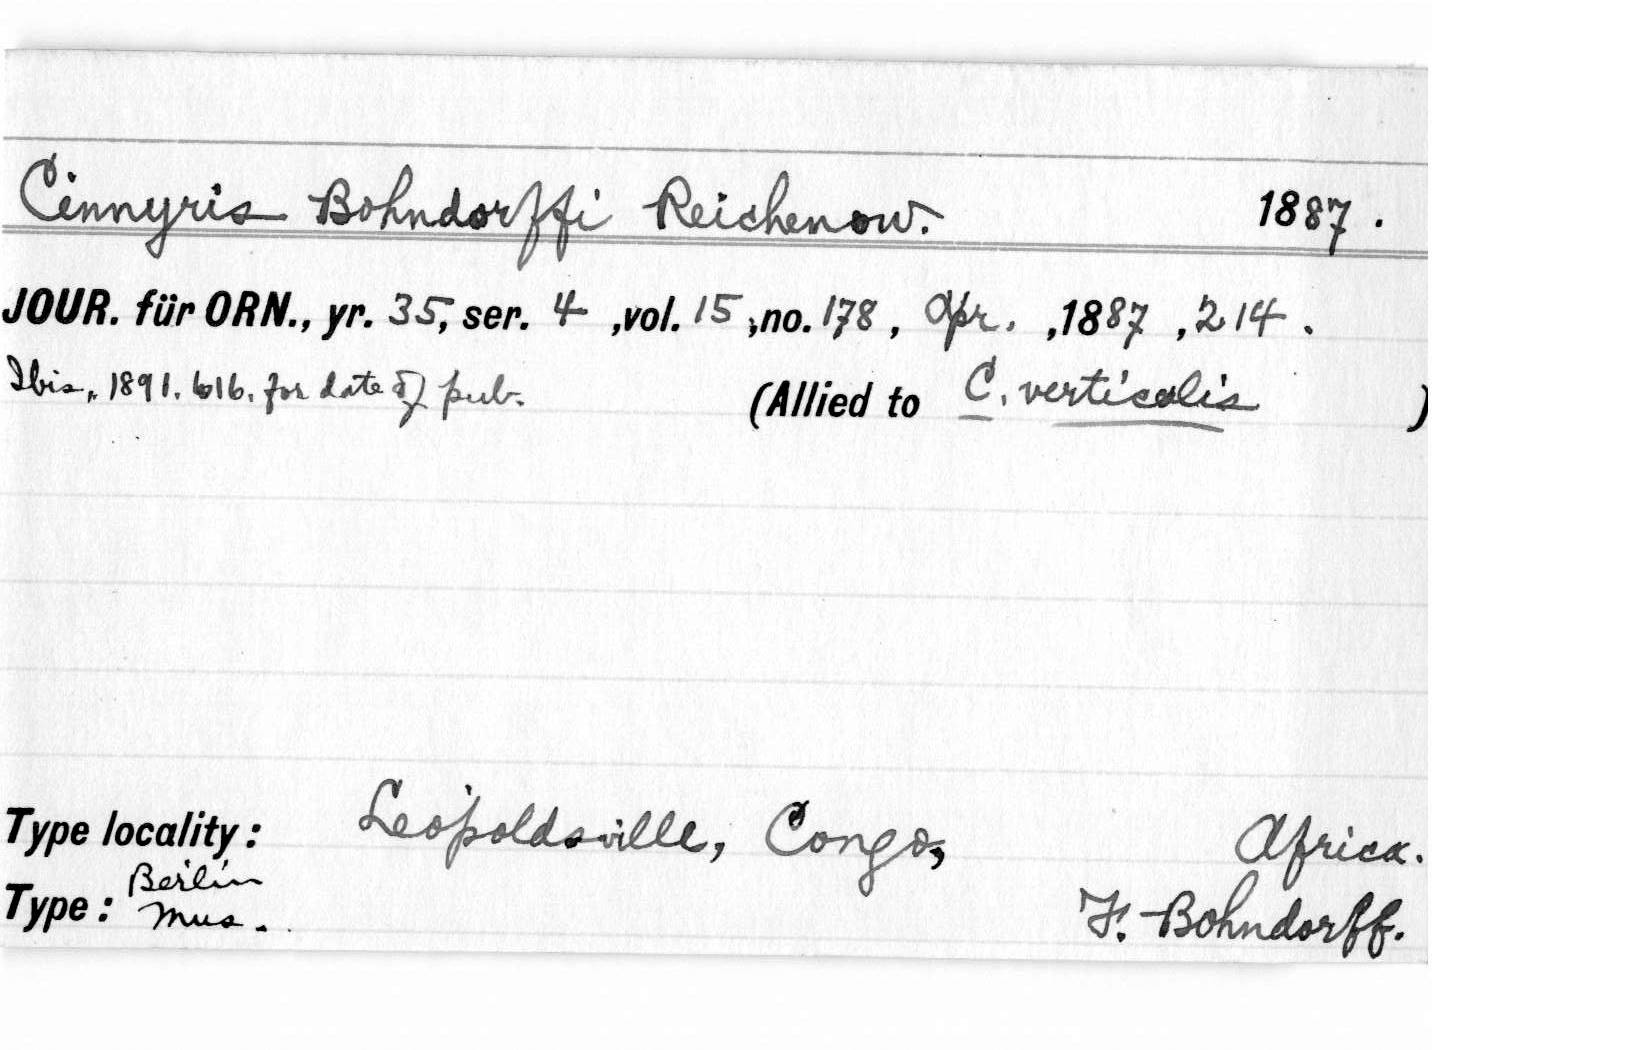 Cinnyris Bohndorffi Reichenow. 1887.
JOUR. für ORN., yr. 35, ser. 4 ,vol. 15 ,no. 178 , Apr. ,1887 ,214.
Ibis, 1891. 616. for date of pub. (Allied to C. verticalis )
Type locality: Leopoldsville, Congo, Africa.
Type: Berlin Mus. F. Bohndorff.